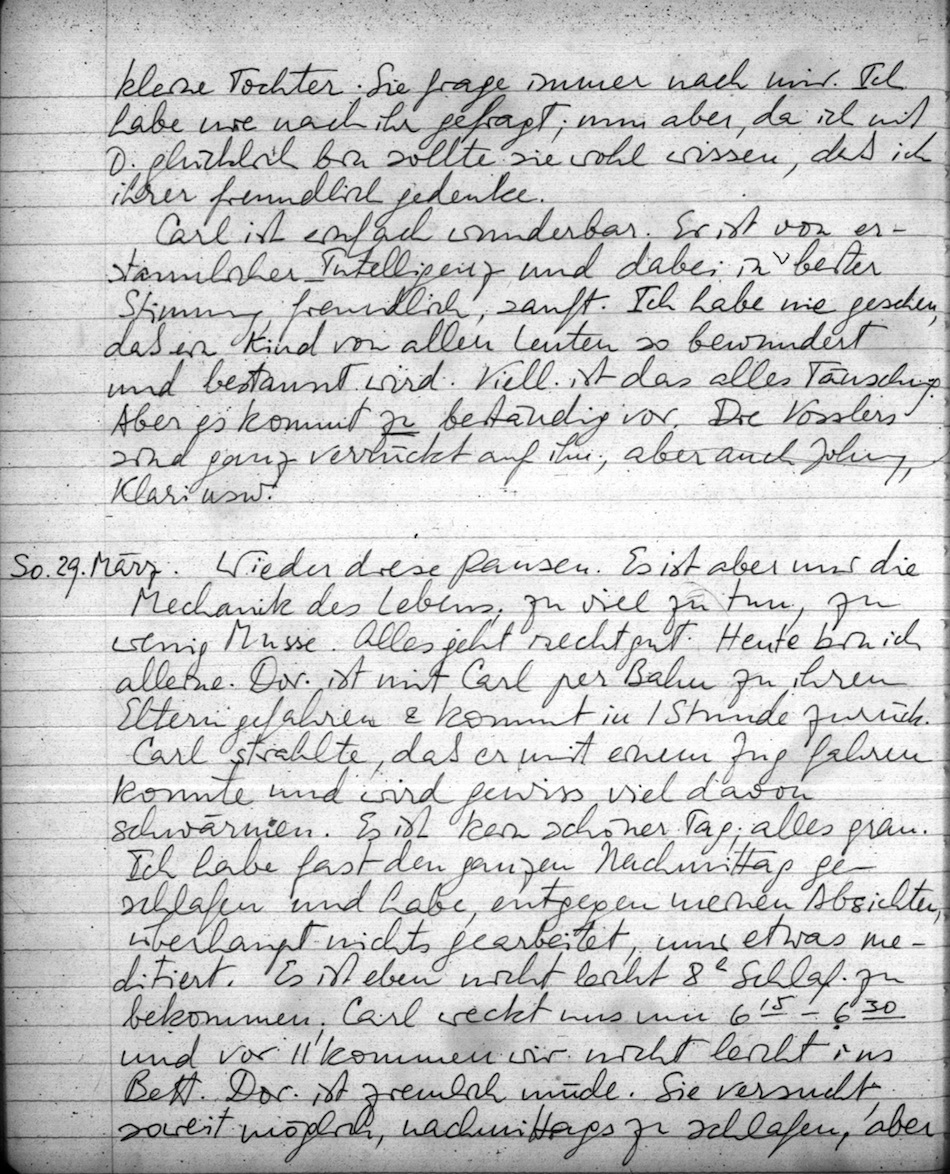 kleine Tochter. Sie frage immer nach mir. Ich
habe nie nach ihr gefragt; nun aber, da ich mit
D. glücklich bin sollte sie wohl wissen, daß ich
ihrer freundlich gedenke.
Carl ist einfach wunderbar. Er ist von er-
staunlicher Intelligenz und dabei in bester
Stimmung, freundlich, sanft. Ich habe nie gesehen,
daß ein Kind von allen Leuten so bewundert
und bestaunt wird. Viell. ist das alles Täuschung.
Aber es kommt zu beständig vor. Die Vosslers
sind ganz verrückt auf ihn, aber auch Johnny,
Klari usw.
So. 29. März. Wieder diese Pausen. Es ist aber nur die
Mechanik des Lebens, zu viel zu tun, zu
wenig Musse. Alles geht recht gut. Heute bin ich
alleine. Dor. ist mit Carl per Bahn zu ihren
Eltern gefahren & kommt in 1 Stunde zurück.
Carl strahlte, daß er mit einem Zug fahren
konnte und wird gewiss viel davon
schwärmen. Es ist kein schöner Tag, alles grau.
Ich habe fast den ganzen Nachmittag ge-
schlafen und habe, entgegen meinen Absichten,
überhaupt nichts gearbeitet, nur etwas me-
ditiert. Es ist eben nicht leicht 8h Schlaf zu
bekommen, Carl weckt uns um 6 15 – 6 30
und vor 11 kommen wir nicht leicht ins
Bett. Dor. ist ziemlich müde. Sie versucht,
soweit möglich, nachmittags zu schlafen, aber